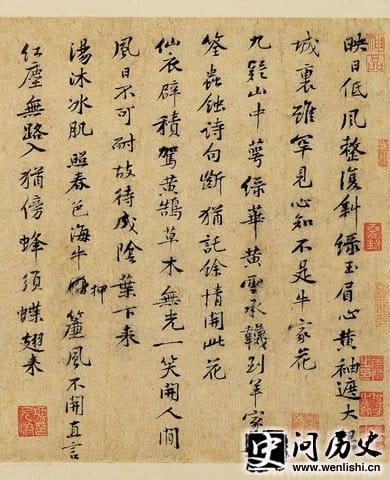 映日低風整復斜綠玉眉心黃袖遮大
城裏雖罕見心知不是牛家花
九疑山中萼綠華黃雲承韈到羊家
筌蟲蝕詩句斷猶託餘情開此花
仙衣襞積駕黃鵠草木無光一笑開人間
風日不可耐故待成陰葉下來
湯沐冰肌照春色海牛押簾風不開直言
紅塵無路入猶傍蜂須蝶翅來
问历史
www.wenlishi.cn